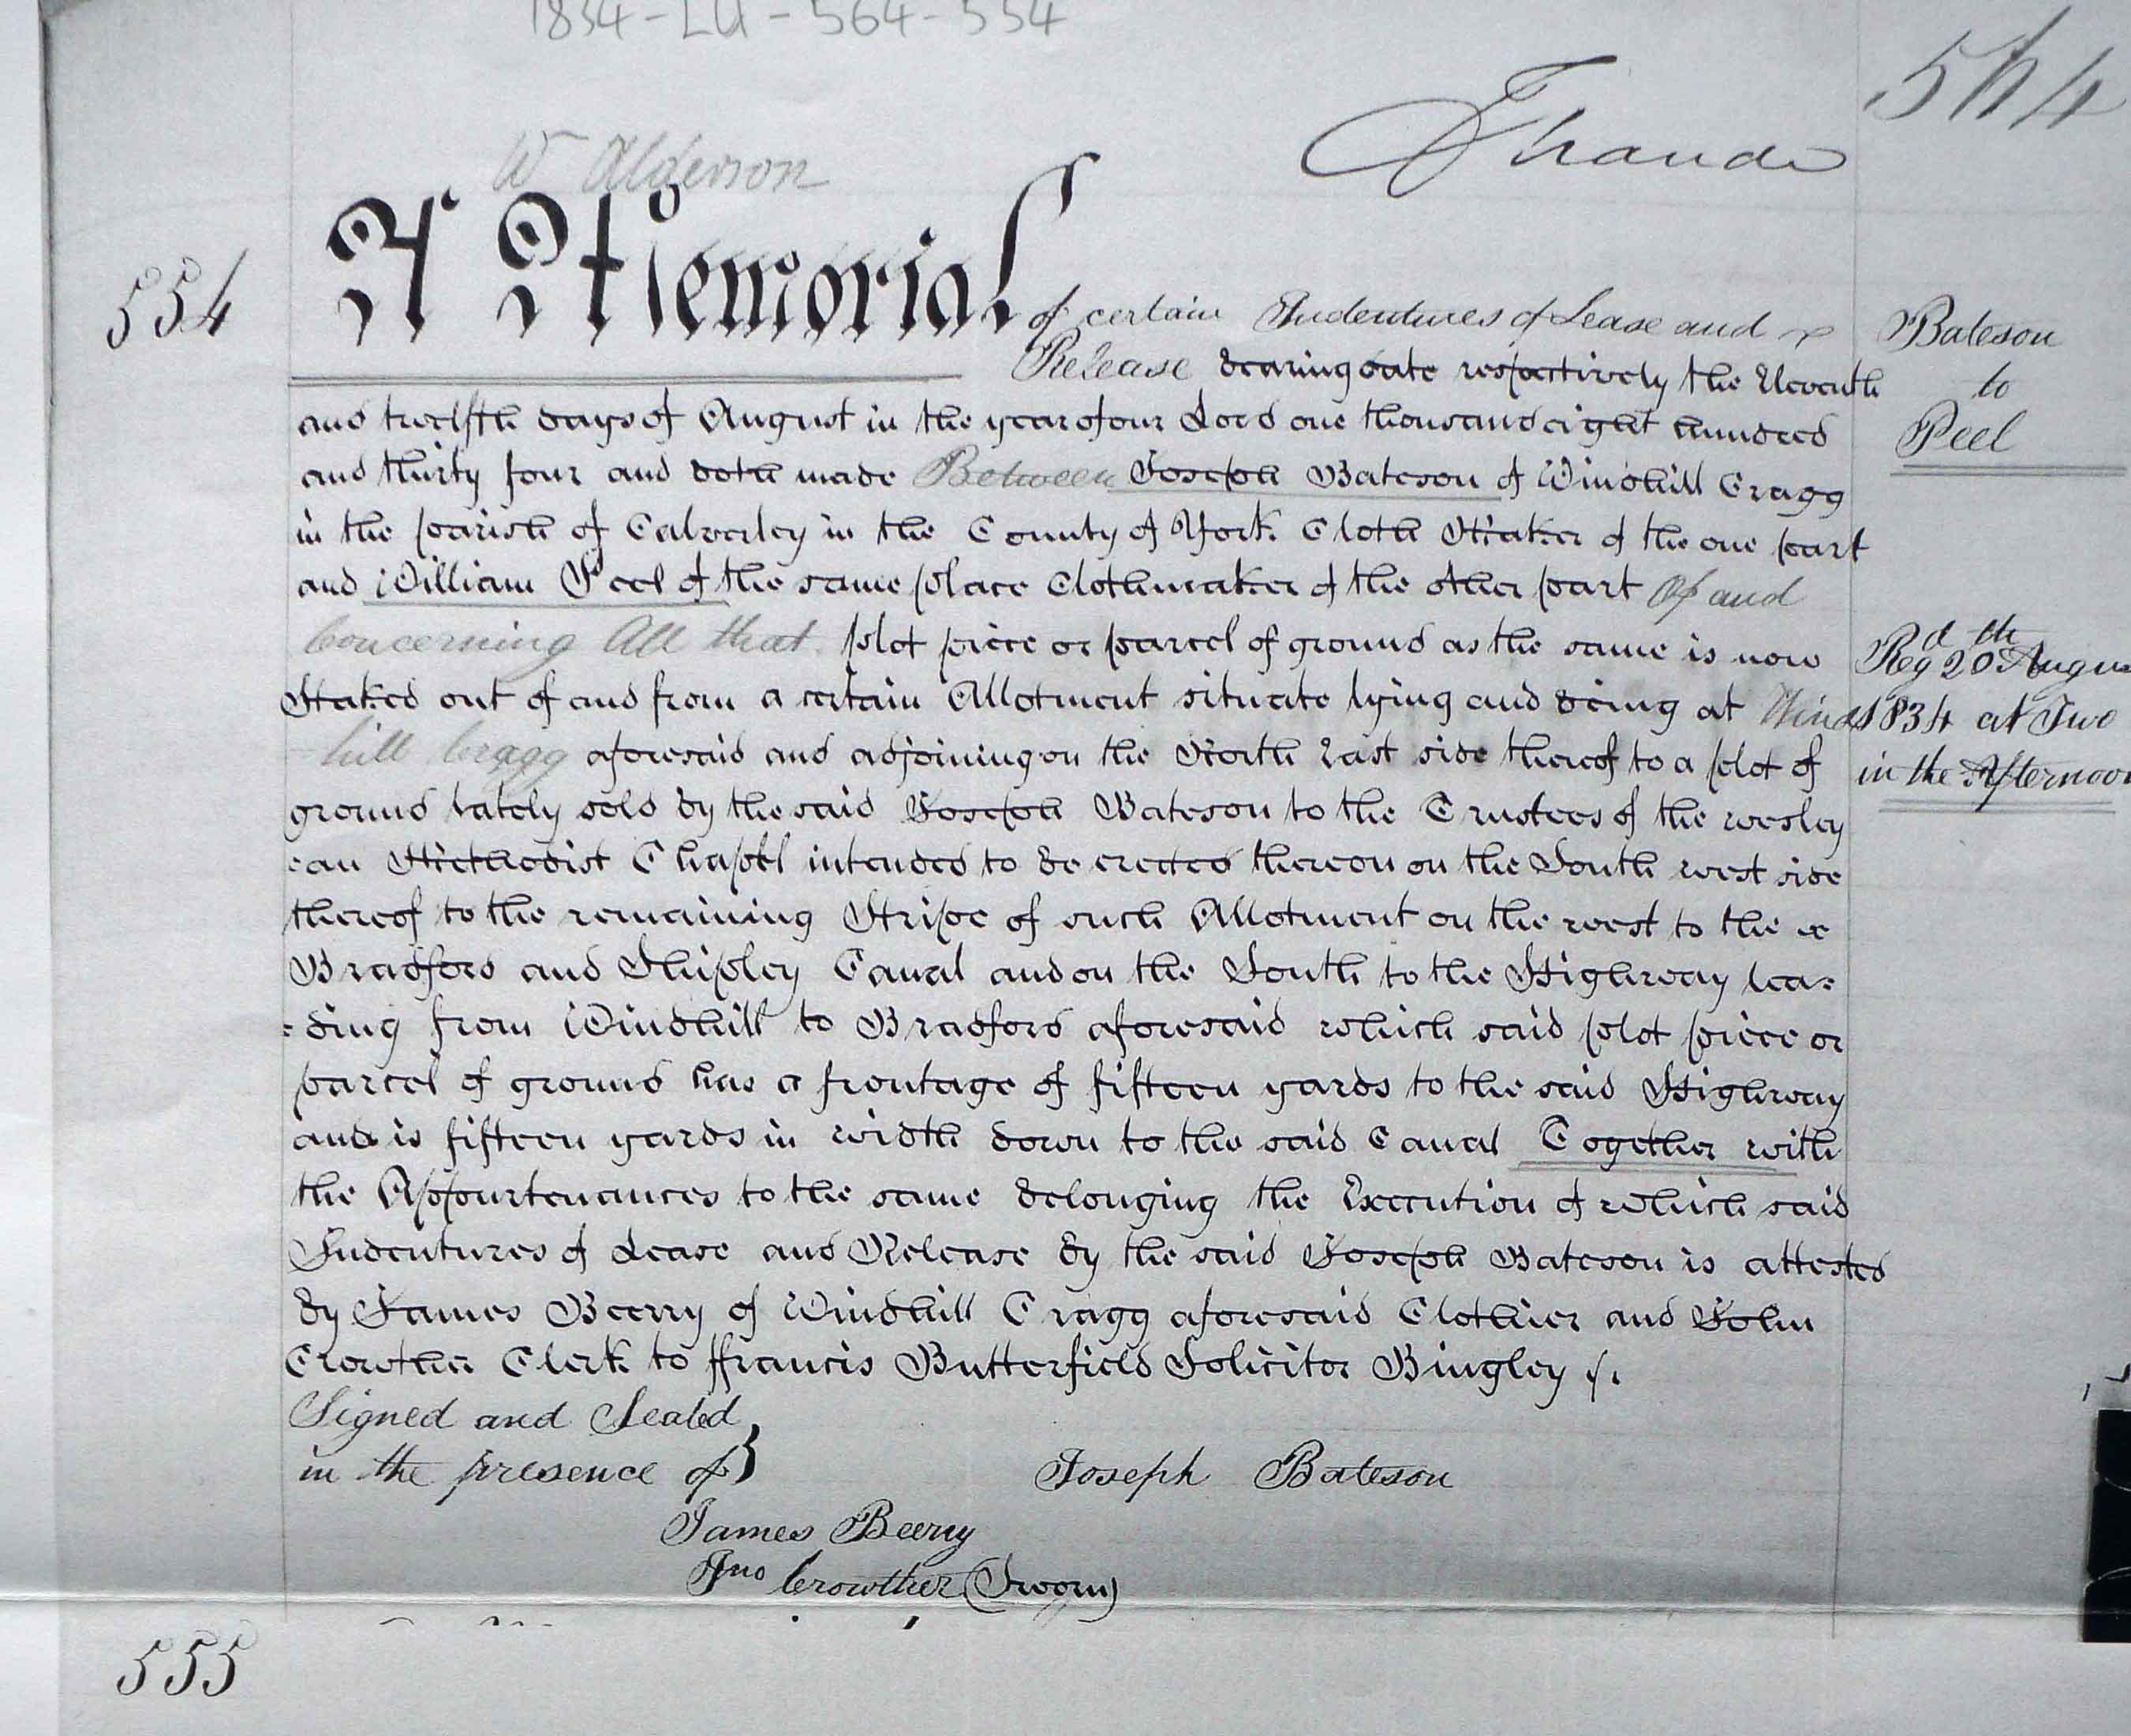 1834-LU-564-554
564
W Alderson
554
A Memorial of certain Indentures of Lease and
Release bearing date respectively the Eleventh
and twelfth days of August in the year of our Lord one thousand eight hundred
and thirty four and both made Between Joseph Bateson of Windhill Cragg
in the parish of Calverley in the County of York Cloth Maker of the one part
and William Peel of the same place Clothmaker of the other part Of and
Concerning All that plot piece or parcel of ground as the same is now
Staked out of and from a certain Allotment situate lying and being at Wind
hill Cragg aforesaid and adjoining on the North East side thereof to a plot of
ground lately sold by the said Joseph Bateson to the Trustees of the wesley
=an Methodist Chapel intended to be erected thereon on the South west side
thereof to the remaining Stripe of such Allotment on the west to the
Bradford and Shipley Canal and on the South to the Highway lea=
=ding from Windhill to Bradford aforesaid which said plot piece or
parcel of ground has a frontage of fifteen yards to the said Highway
and is fifteen yards in width down to the said Canal Together with
the Appurtenances to the same belonging the Execution of which said
Indentures of Lease and Release by the said Joseph Bateson is attested
by James Beerry of Windhill Cragg aforesaid Clothier and John
Crowther Clerk to ffrancis Butterfield Solicitor Bingley
Signed and Sealed
in the presence of}
Joseph Bateson
James Beerry
Jno Crowther (Sworn)
Bateson
to
Peel
Regd 20th Augus
1834 at Two
in the Afternoon
555